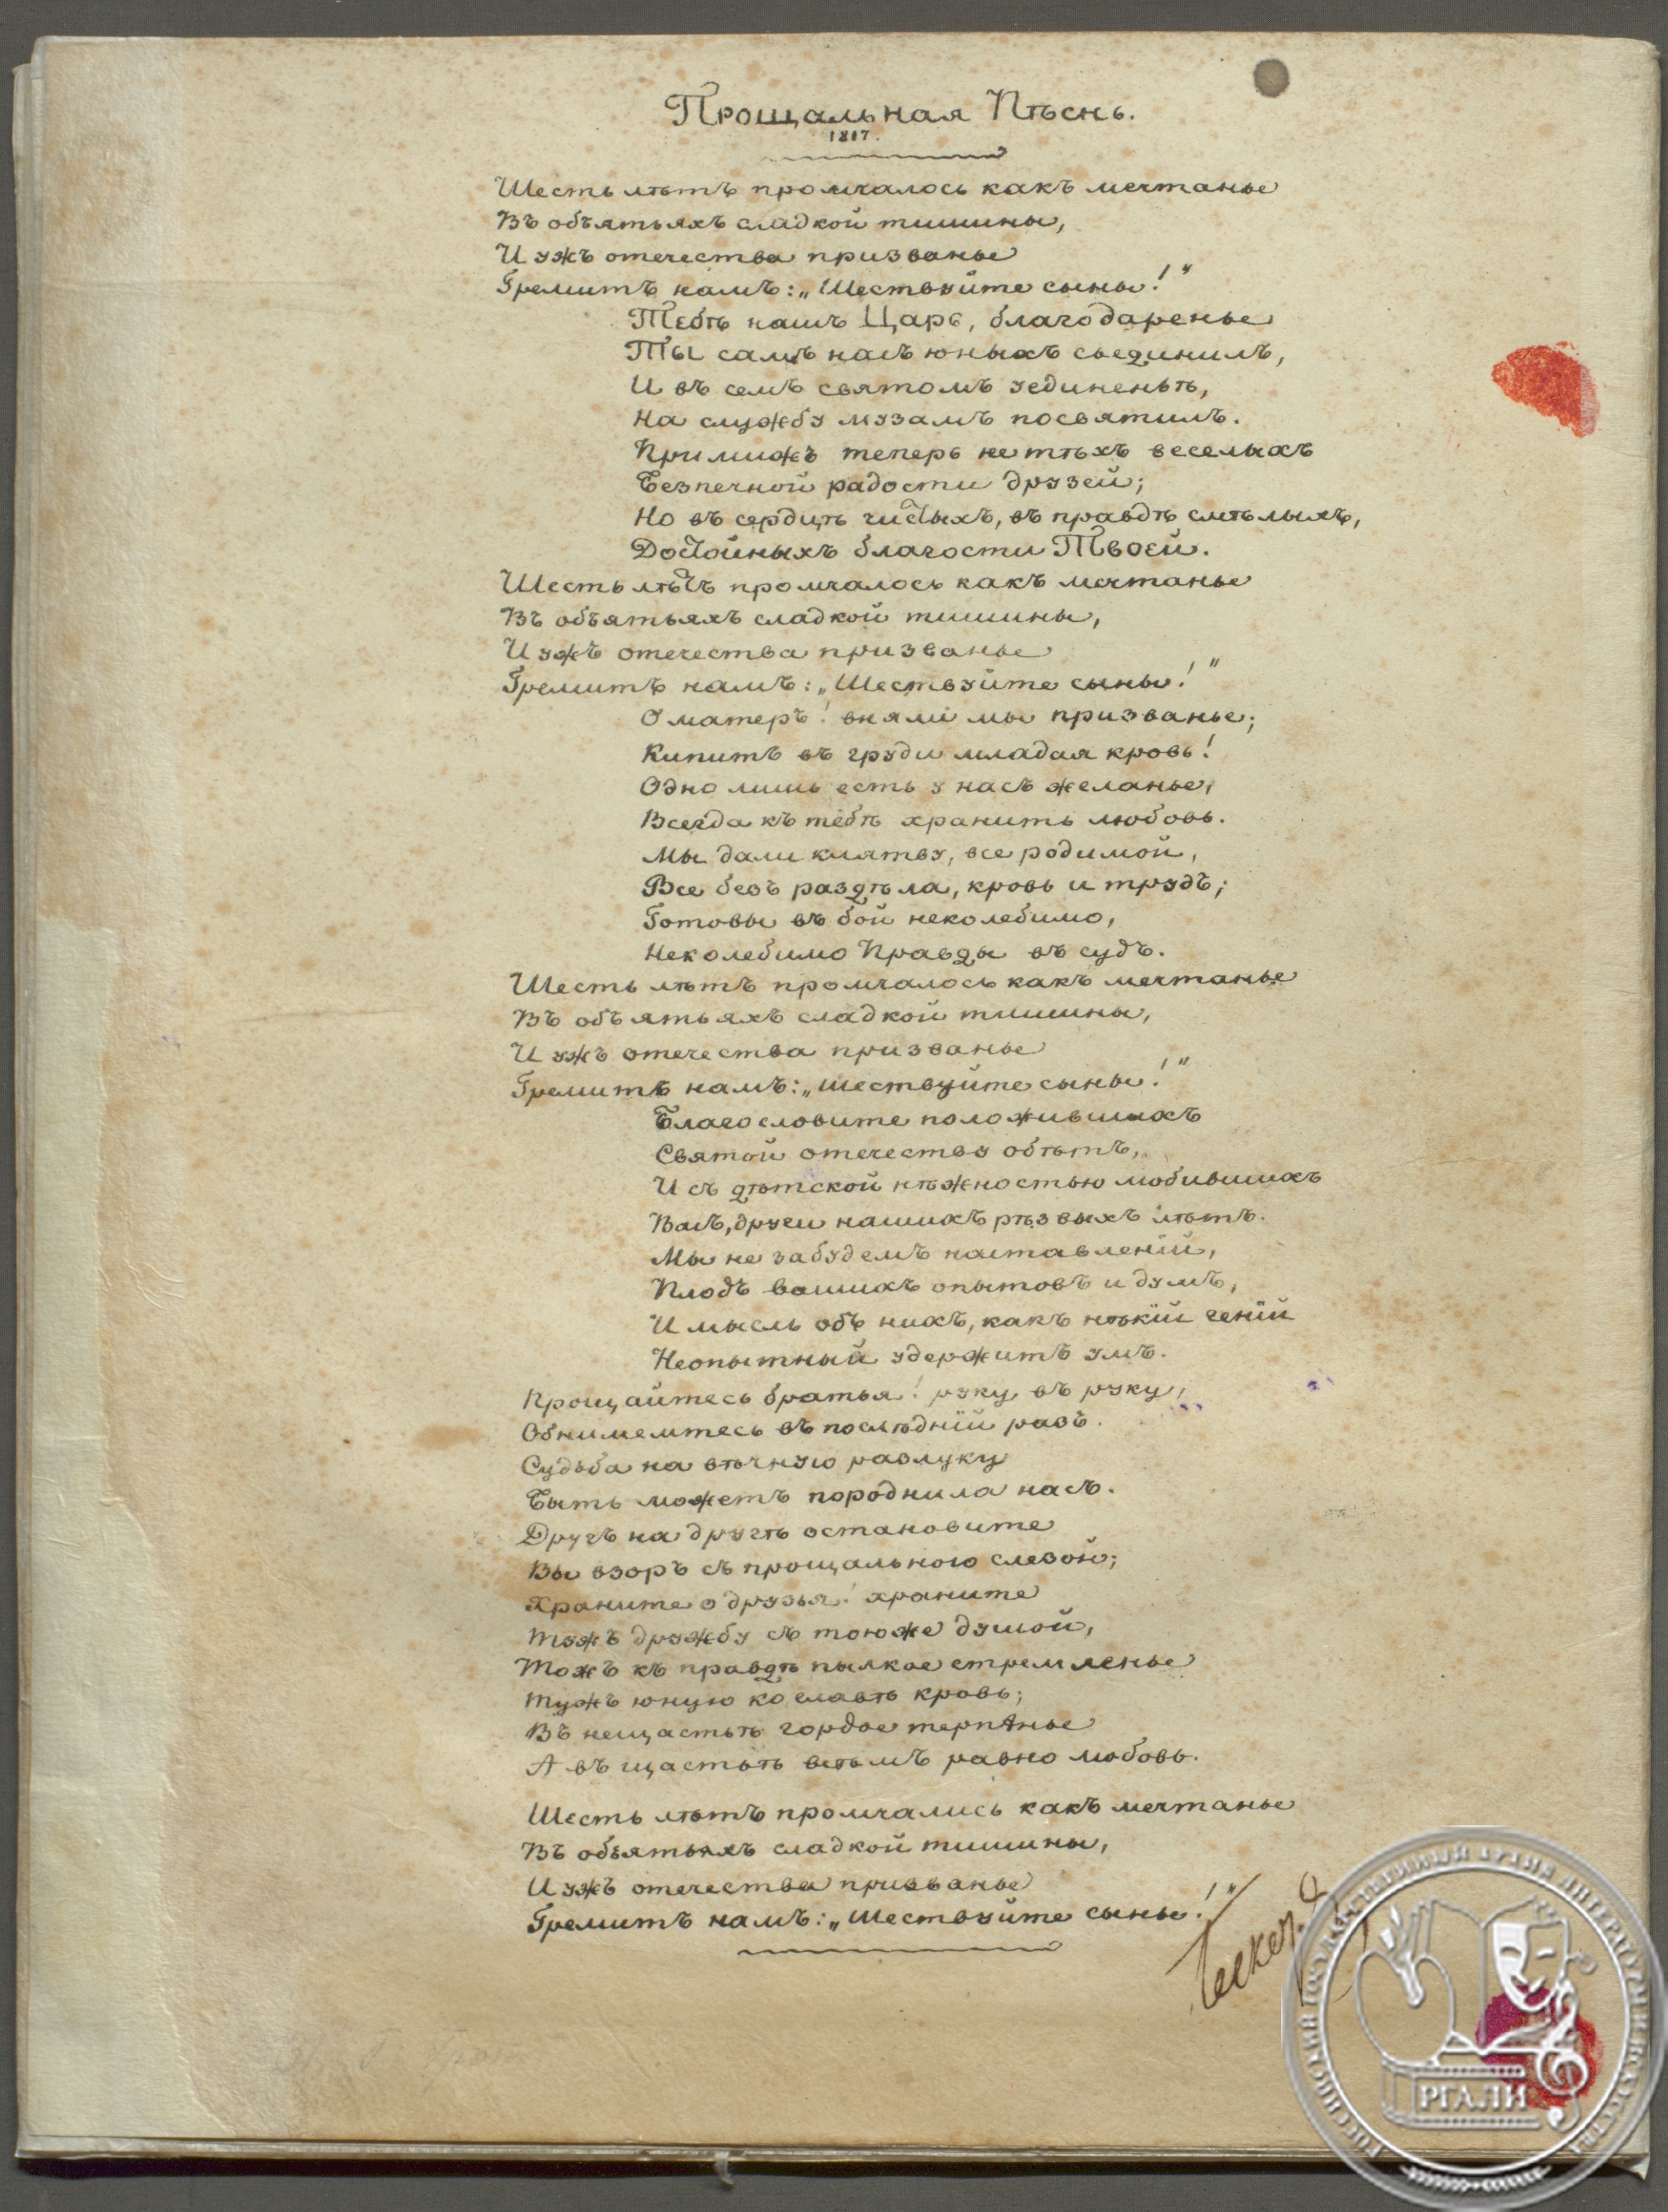 Прощальная Пѣснь.
1817.
Шесть лѣтъ промчалось какъ мечтанье
Въ объятьяхъ сладкой тишины,
И ужъ отечества призванье
Гремитъ намъ: „Шествуйте сыны!"
Тебѣ нашъ Царь, благодаренье
Ты самъ насъ юныхъ съединилъ,
И въ семъ святомъ уединеньѣ,
На службу музамъ посвятилъ.
Примижъ теперь не тѣхъ веселыхъ
Безпечной радости друзей;
Но въ сердцѣ чистыхъ, въ правдѣ смѣлыхъ,
Достойныхъ благости Твоей.
Шесть лѣтъ промчалось какъ мечтанье
Въ объятьяхъ сладкой тишины,
И ужъ отечества призванье
Гремитъ намъ: „Шествуйте сыны!"
О матерь! вняли мы призванье;
Кипитъ въ груди младая кровь!
Одно лишь есть у насъ желанье,
Всегда къ тебѣ хранить любовь.
Мы дали клятву, все родимой,
Все безъ раздѣла, кровь и трудъ;
Готовы въ бой неколебимо,
Неколебимо Правды въ судъ.
Шесть лѣтъ промчалось какъ мечтанье
Въ объятьяхъ сладкой тишины,
И ужъ отечества призванье
Гремитъ намъ: „шествуйте сыны!"
Благословите положившихъ
Святой отечеству обѣтъ,
И съ дѣтской нѣжностью любившихъ
Васъ, други нашихъ рѣзвыхъ лѣтъ.
Мы не забудемъ наставленій,
Плодъ вашихъ опытовъ и думъ,
И мысль объ нихъ, какъ нѣкій геній
Неопытный удержитъ умъ.
Прощайтесь братья! руку въ руку,
Обнимемтесь въ послѣдній разъ.
Судьба на вѣчную разлуку
Быть можетъ породнила насъ.
Другъ на другѣ остановите
Вы взоръ съ прощальною слезой;
Храните о друзья! храните
Тужъ дружбу съ тоюже душой,
Тожъ къ правдѣ пылкое стремленье
Тужъ юную ко славѣ кровь;
Въ нещастьѣ гордое терпѣнье
А въ щастьѣ всѣмъ равно любовь.
Шесть лѣтъ промчались какъ мечтанье
Въ объятьяхъ сладкой тишины,
И ужъ отечества призванье
Гремитъ намъ: „Шествуйте сыны!"
РГАЛИ
РОССИЙСКИЙ ГОСУДАРСТВЕННЫЙ АРХИВ ЛИТЕРАТУРЫ И ИСКУССТВА